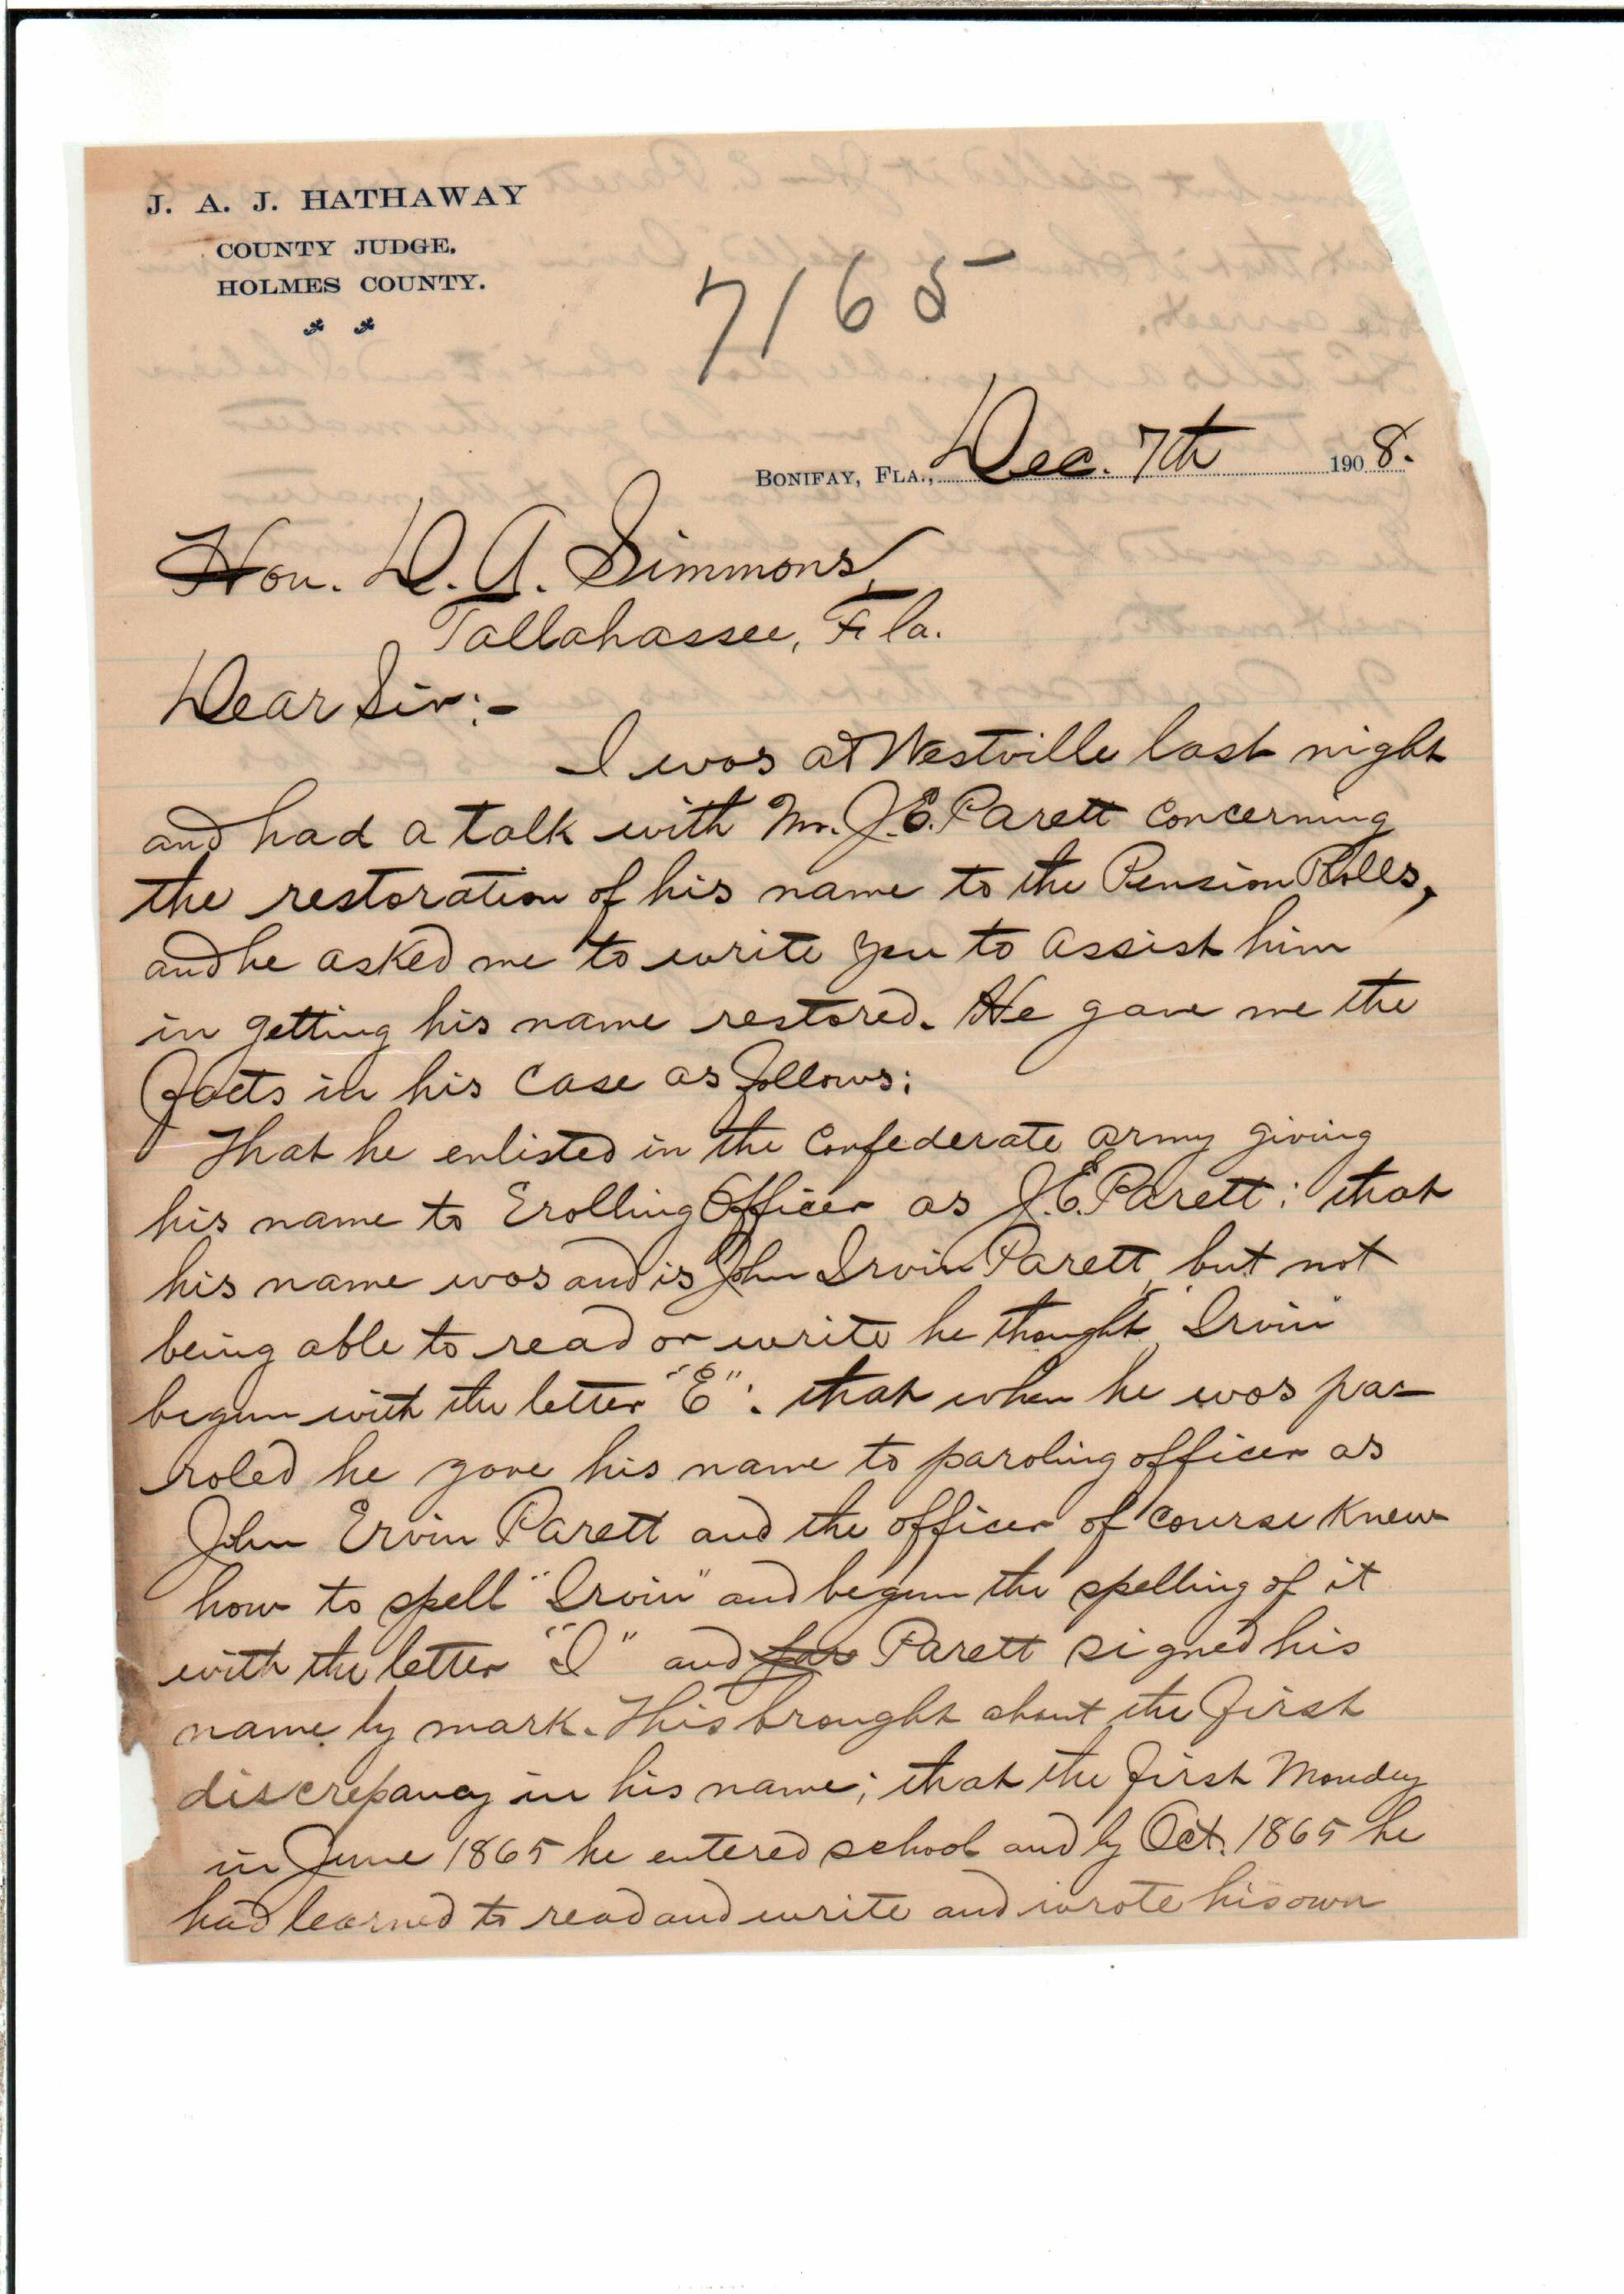 J. A. J. HATHAWAY
COUNTY JUDGE.
HOLMES COUNTY.
7165
BONIFAY, FLA., Dec. 7th 1908.
Hon. D. A. Simmons,
Tallahassee, Fla.
Dear Sir:-
I was at Westville last night
and had a talk with Mr. J. E. Parett concerning
the restoration of his name to the Pension Rolls,
and he asked me to write you to assist him
in getting his name restored. He gave me the
facts in his case as follows:
That he enlisted in the Confederate army giving
his name to Erolling Officer as J. E. Parett; that
his name was and is John Irvin Parett, but not
being able to read or write he thought "Irvin"
begun with the letter "E": that when he was pa-
roled he gave his name to paroling officer as
John Ervin Parett and the officer of course knew
how to spell "Irvin" and begun the spelling of it
with the letter "I" and Parett signed his
name by mark. This brought about the first
discrepancy in his name; that the first Monday
in June 1865 he entered school and by Oct. 1865 he
had learned to read and write and wrote his own